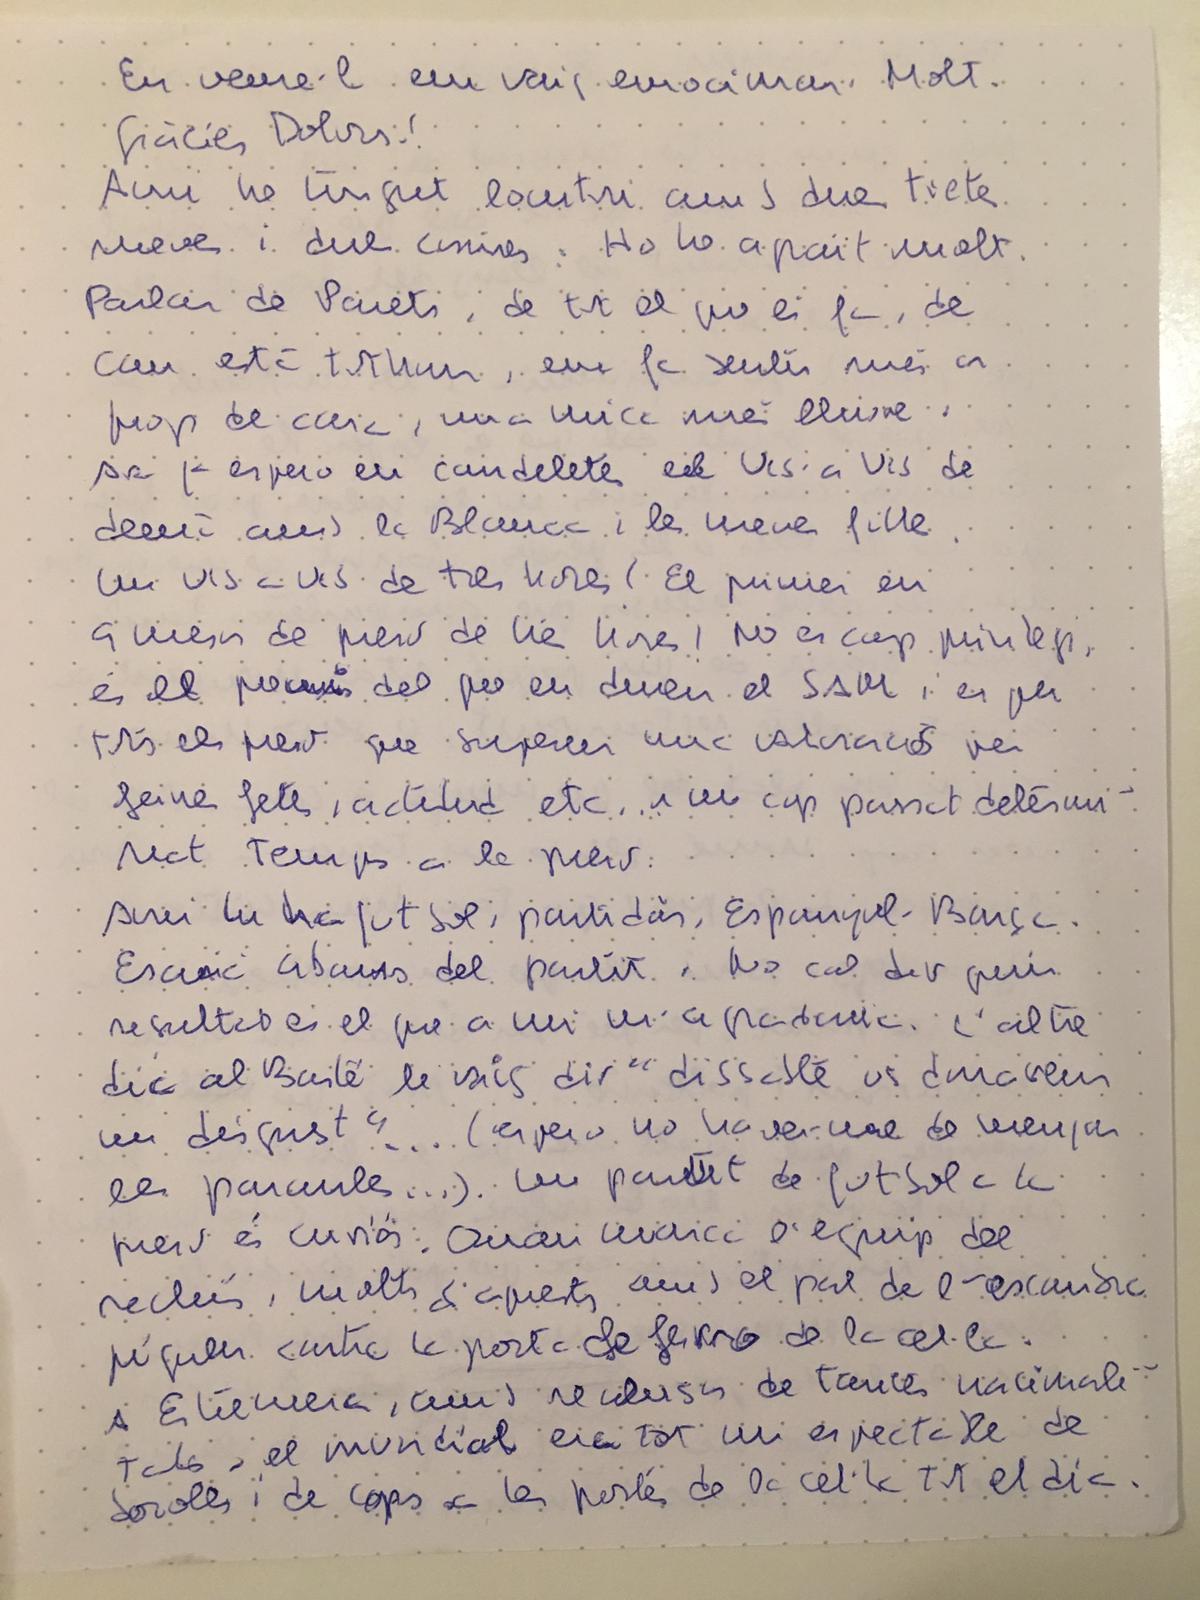 En veure-l em vaig emocionar. Molt.
Gràcies Dolors!
Avui he tingut locutori amb dues tietes
meves i dues cosines. Ho he agraït molt.
Parlar de Parets, de tot el que es fa, de
com està tothom, em fa sentir més a
prop de casa, una mica més lliure.
Ara ja espero en candeletes el vis a vis de
demà amb la Blanca i les meves filles.
Un vis a vis de tres hores! El primer en
9 mesos de presó de tres hores! No és cap privilegi,
és el premi del que en diuen el SAM i és per
tots els presos que superen una valoració per
feines fetes, actitud etc... i un cop passat determi-
nat temps a la presó.
Avui hi ha futbol, partidàs, Espanyol-Barça.
Escric abans del partit. No cal dir quin
resultat és el que a mi m'agradaria. L'altre
dia al Basté li vaig dir "dissabte us donarem
un disgust"... (espero no haver-me de menjar
les paraules...). Un partit de futbol a la
presó és curiós. Quan marca l'equip del
reclús, molts d'aquests amb el pal de l'escombra
piquen contra la porta de ferro de la cel·la.
A Estremera, amb reclusos de tantes nacionali-
tats, el mundial era tot un espectacle de
sorolls i de cops a les portes de la cel·la tot el dia.